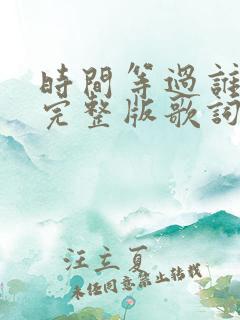 時間等過誰
完整版歌詞
汪立夏
未經同意禁止轉載